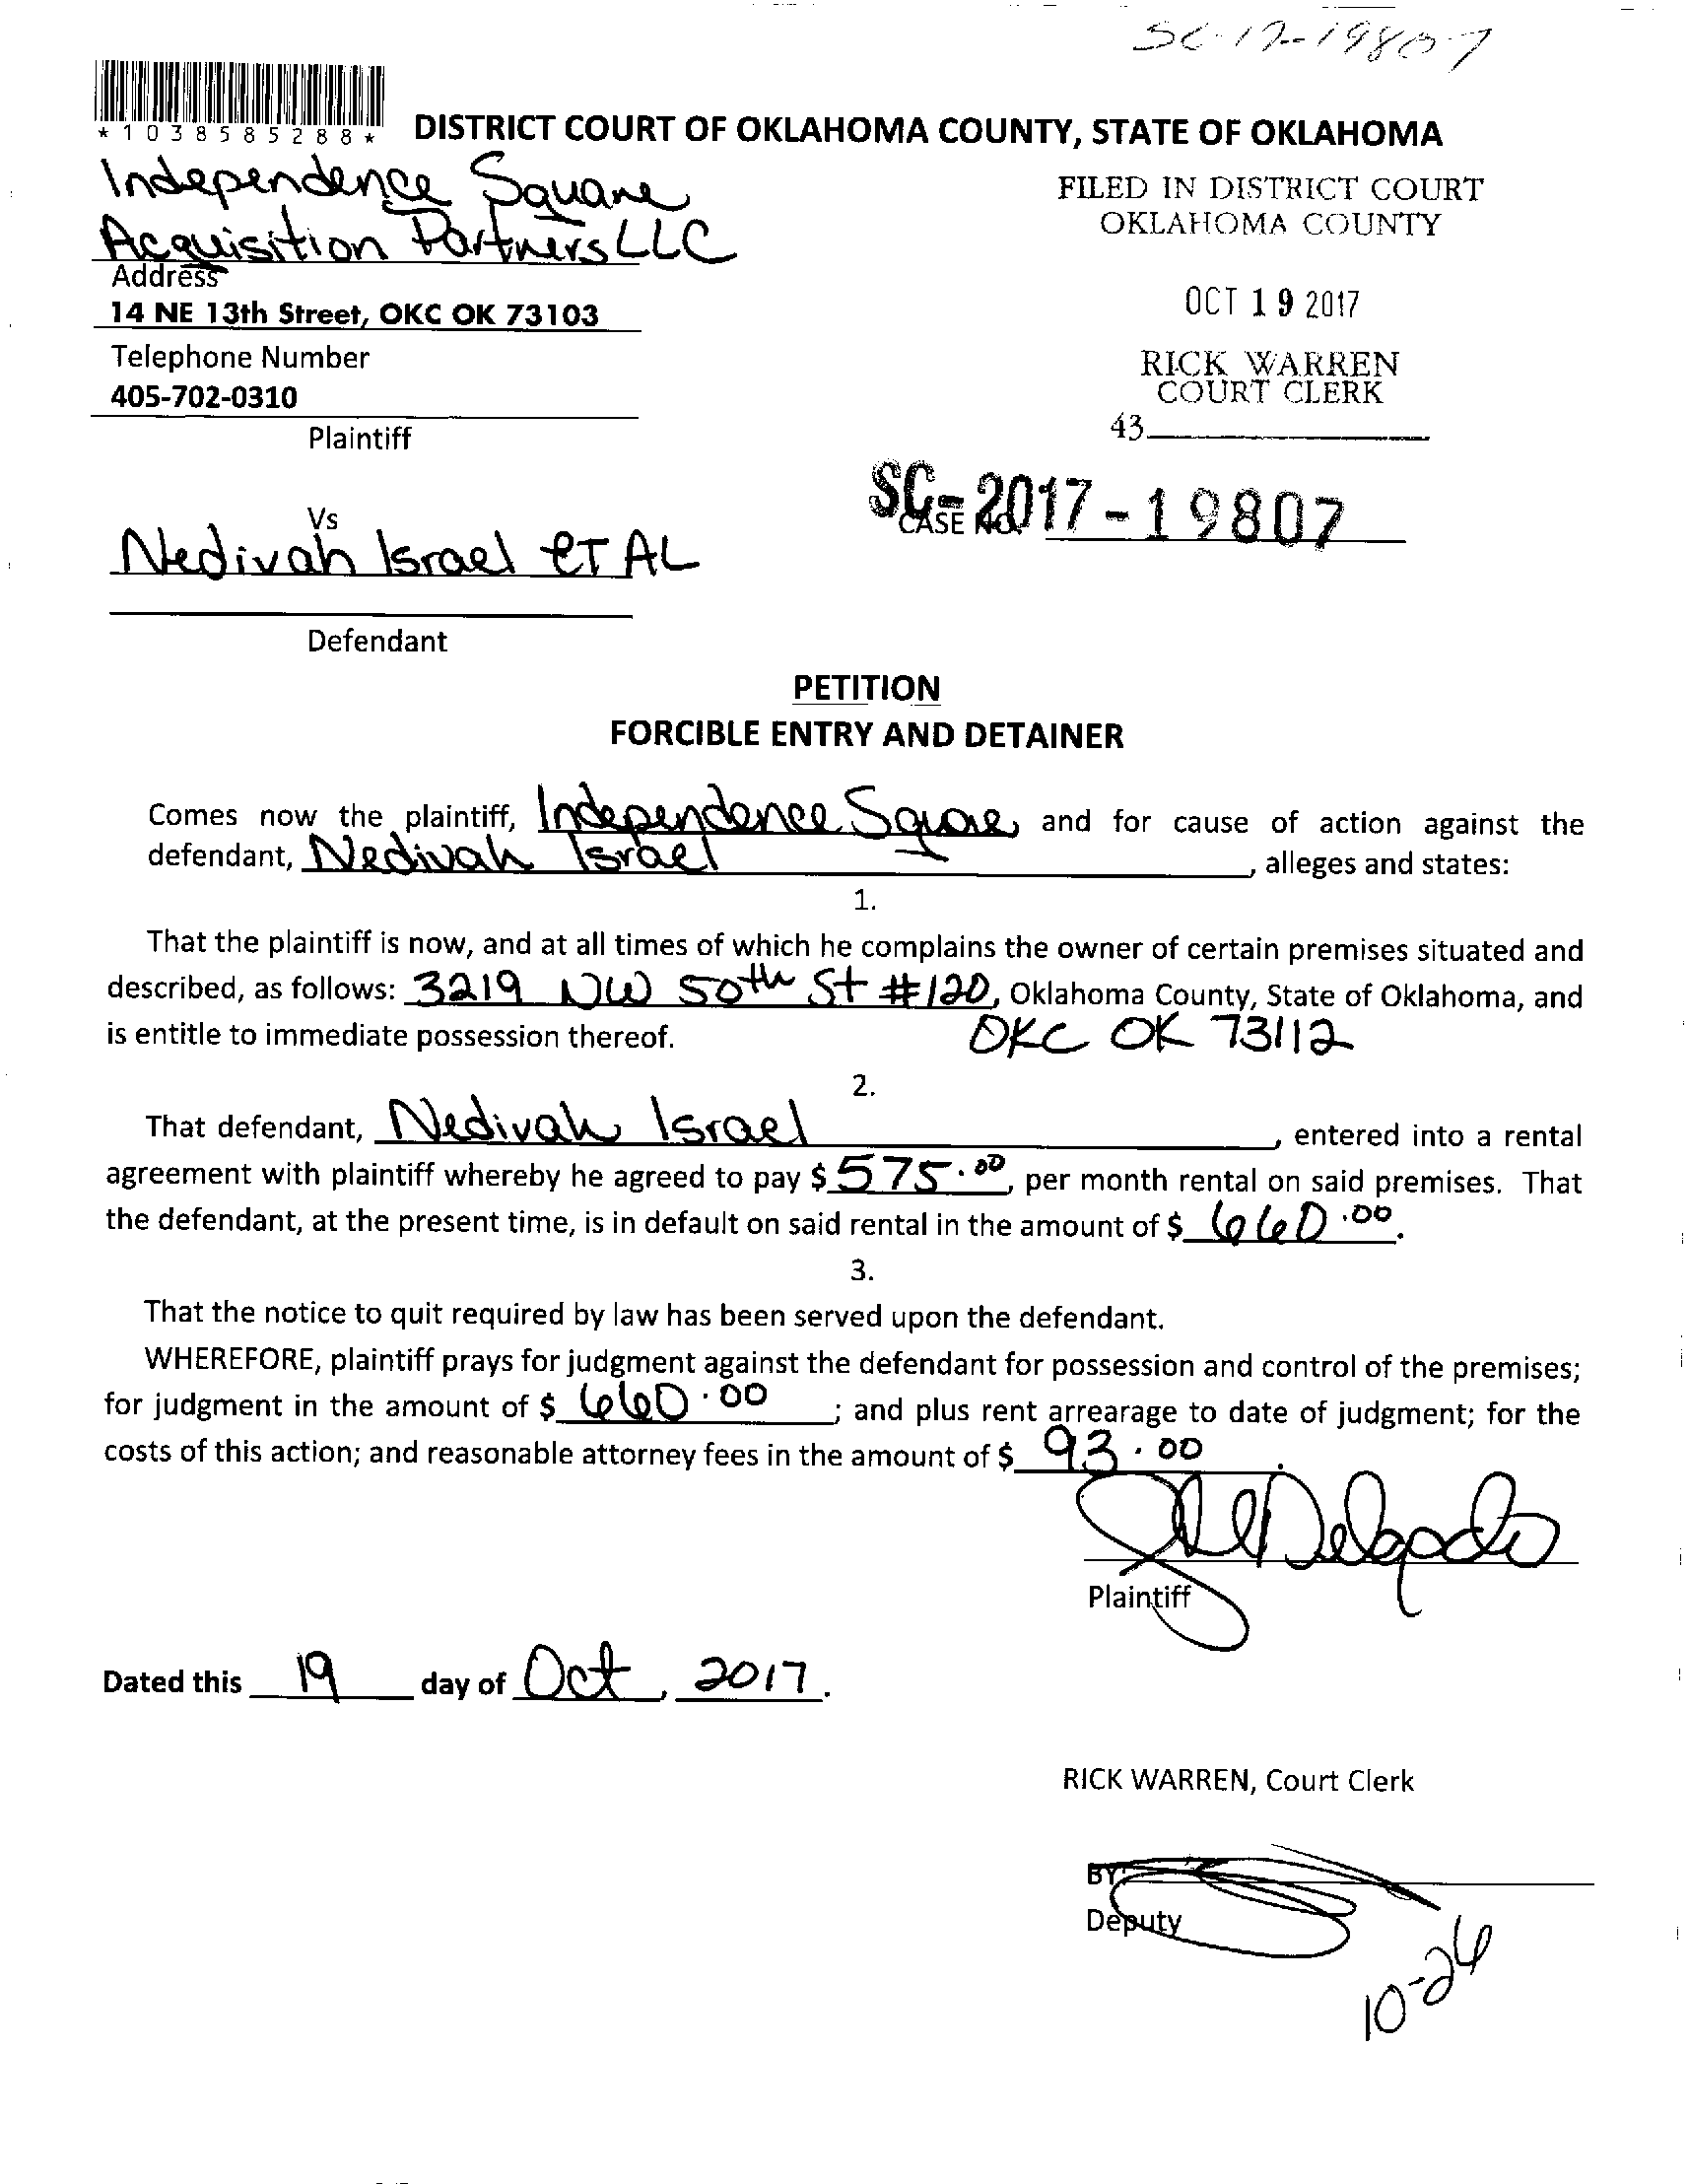 SC-17-19807
*1038585288*
DISTRICT COURT OF OKLAHOMA COUNTY, STATE OF OKLAHOMA
Independence Square
Acquisition Partners LLC
Address
14 NE 13th Street, OKC OK 73103
Telephone Number
405-702-0310
Plaintiff
FILED IN DISTRICT COURT
OKLAHOMA COUNTY
OCT 19 2017
RICK WARREN
COURT CLERK
43
SC-2017-19807
CASE NO.
Vs
Nedivah Israel ET AL
Defendant
PETITION
FORCIBLE ENTRY AND DETAINER
Comes now the plaintiff, Independence Square, and for cause of action against the
defendant, Nedivah Israel, alleges and states:
1.
That the plaintiff is now, and at all times of which he complains the owner of certain premises situated and
described, as follows: 3219 NW 50th St #120, Oklahoma County, State of Oklahoma, and
is entitle to immediate possession thereof. OKC OK 73112
2.
That defendant, Nedivah Israel, entered into a rental
agreement with plaintiff whereby he agreed to pay $575.00, per month rental on said premises. That
the defendant, at the present time, is in default on said rental in the amount of $ 660.00.
3.
That the notice to quit required by law has been served upon the defendant.
WHEREFORE, plaintiff prays for judgment against the defendant for possession and control of the premises;
for judgment in the amount of $ 660.00; and plus rent arrearage to date of judgment; for the
costs of this action; and reasonable attorney fees in the amount of $ 93.00.
Delgado
Plaintiff
Dated this 19 day of Oct, 2017.
RICK WARREN, Court Clerk
BY:
Deputy
10-26